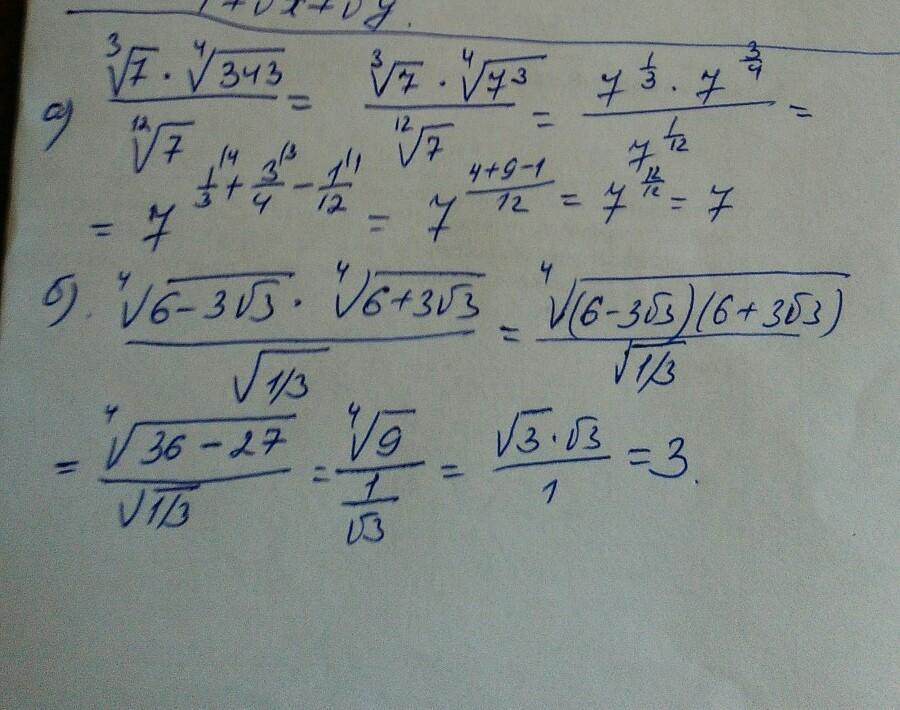 1+√x+√y.
а) (∛7 · ∜343)/¹²√7 = (∛7 · ∜7³)/¹²√7 = (7^(1/3) · 7^(3/4))/7^(1/12) =
= 7^(1/3 ⁽⁴ + 3/4 ⁽³ − 1/12 ⁽¹) = 7^((4+9−1)/12) = 7^(12/12) = 7
б). (∜(6−3√3) · ∜(6+3√3))/√(1/3) = ∜((6−3√3)(6+3√3))/√(1/3)
= ∜(36−27)/√(1/3) = ∜9/(1/√3) = (√3·√3)/1 = 3.